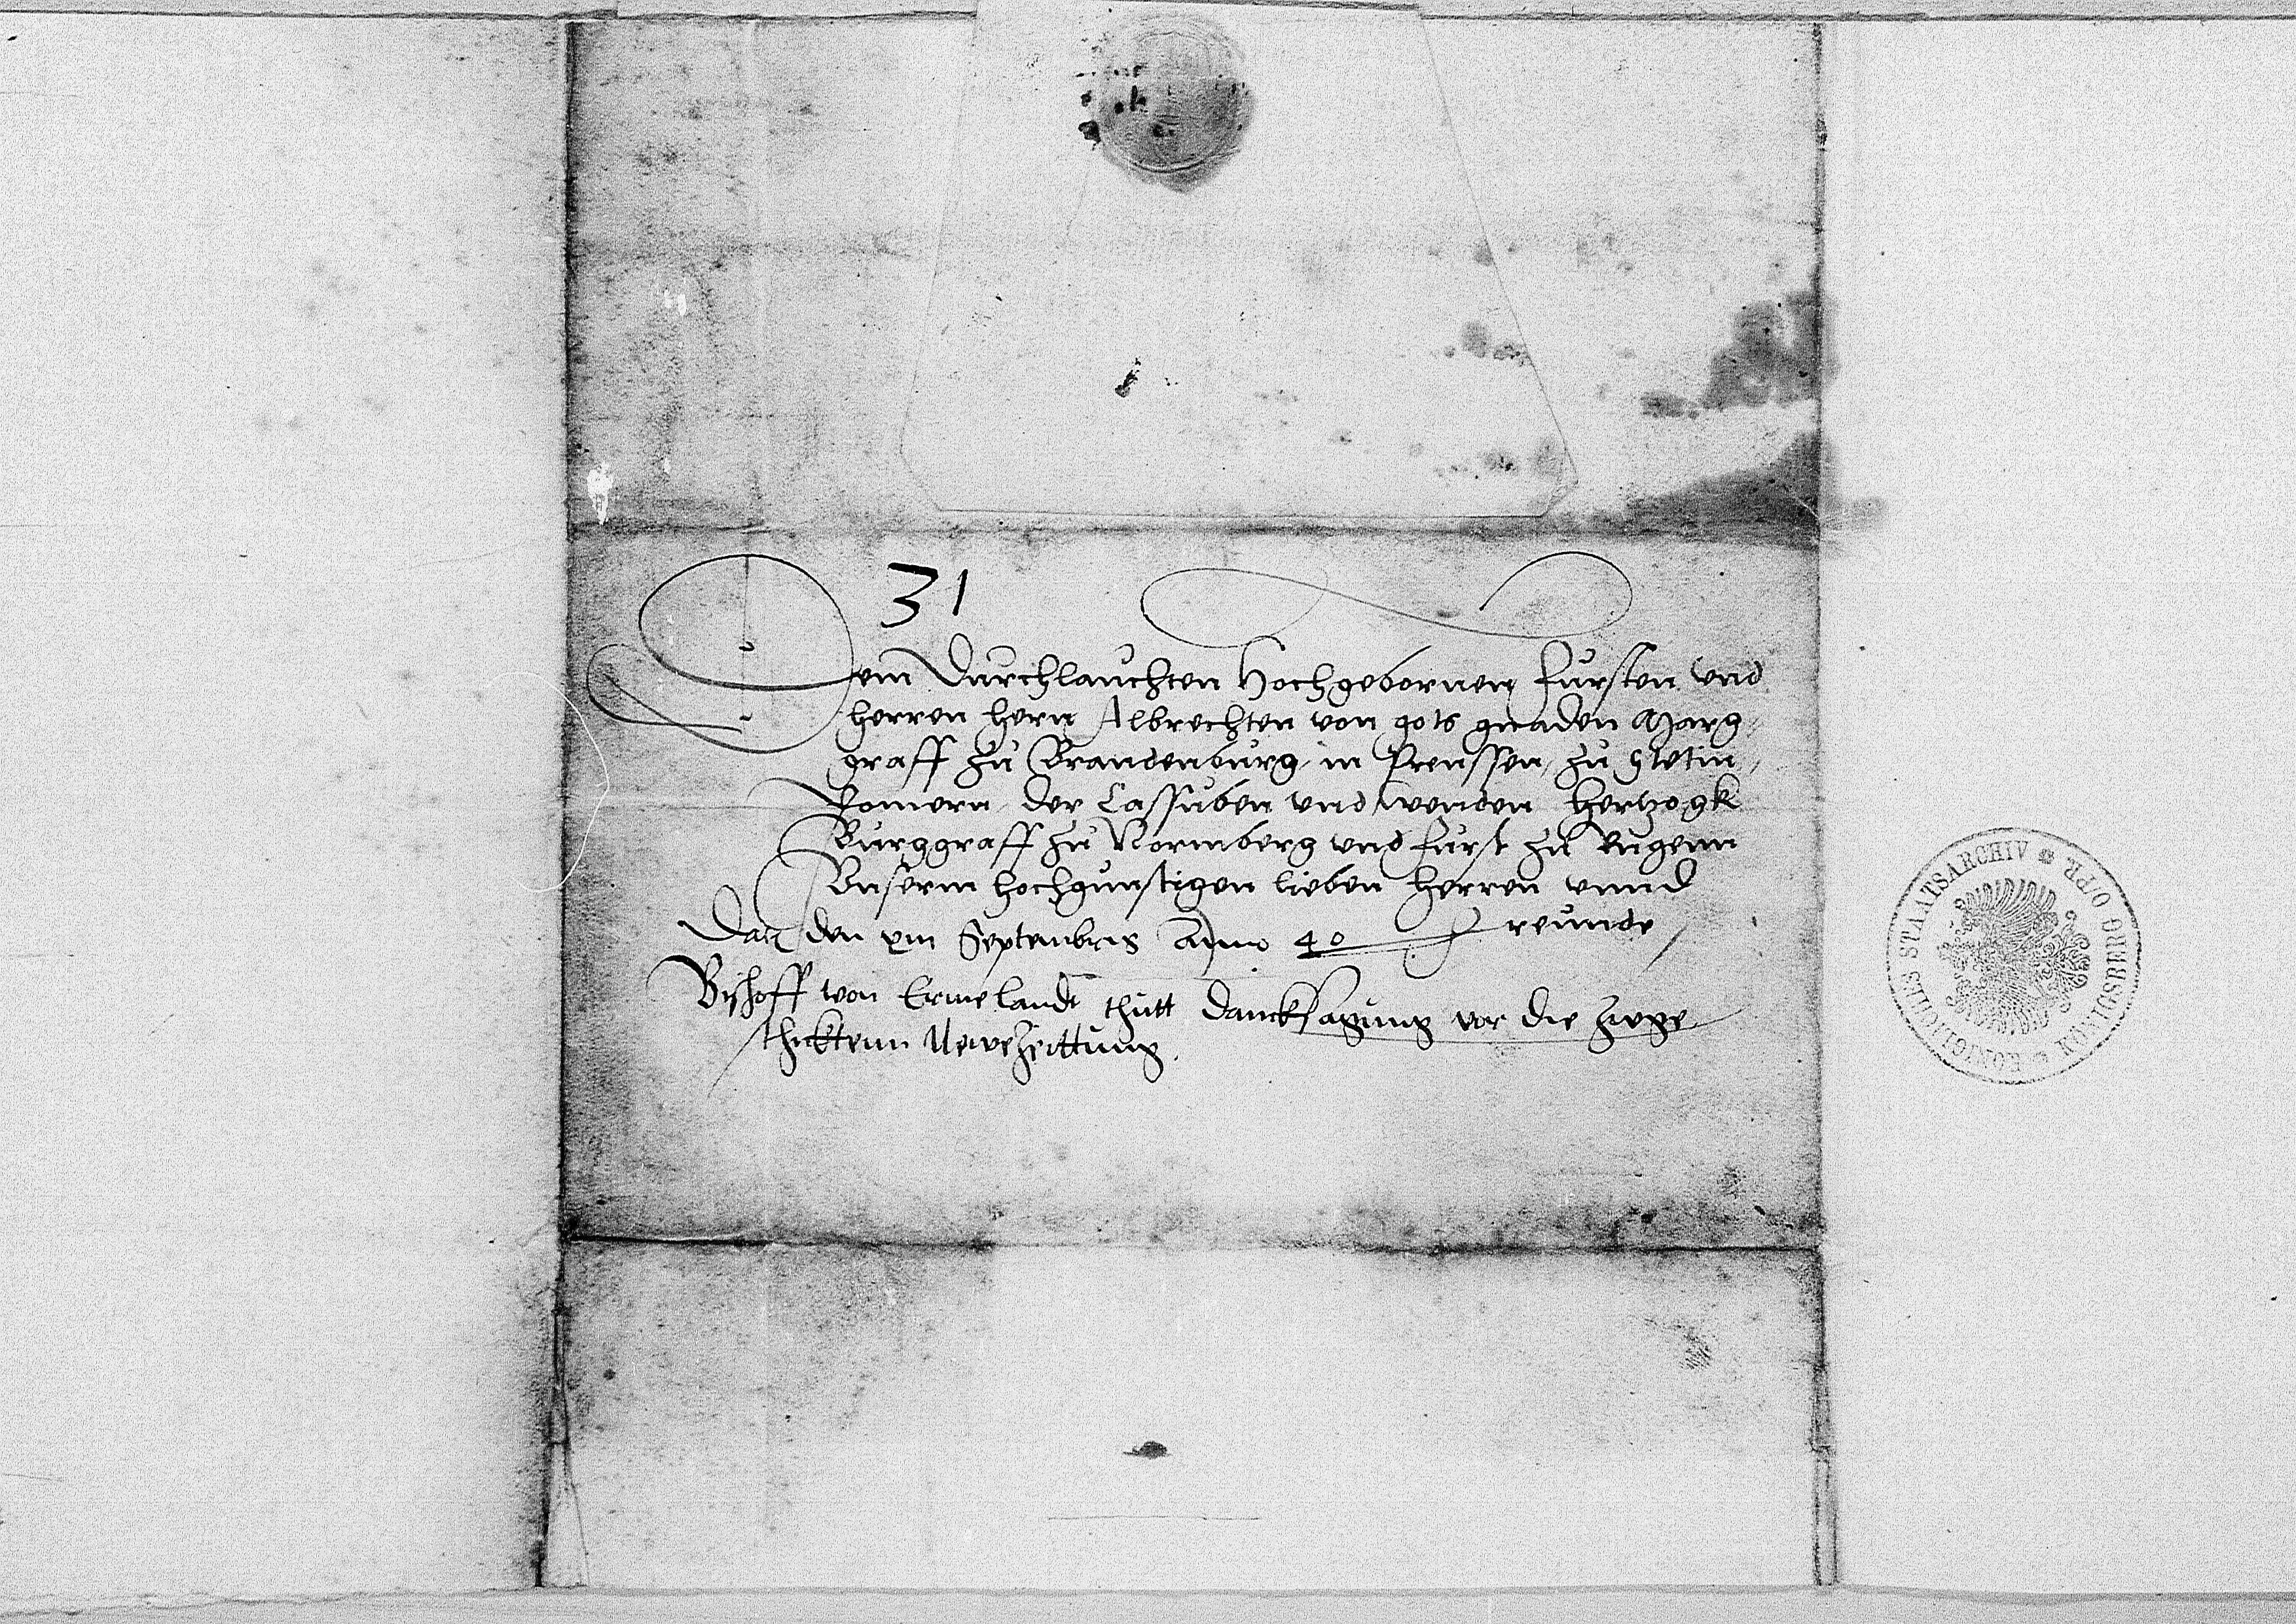 31
Dem Durchlauchten Hochgebornen Fursten vnd
herren hern Albrechten von gots gnaden Marg¬
graff zu Brandenburg in Preussen, zu Stetin,
Pomern der Cassuben vnd Wenden Hertzogk
Burggraff zu Normberg vnd Furst zu Rugenn
Vnserm hochgunstigen lieben Herren vnnd
Freunde
Dat den xiii Septembris Anno 40
Bischoff von Ermelandt thutt Dancksagung vor die zuge
schicktenn Newezeittung.
KÖNIGLICHES STAATSARCHIV KÖNIGSBERG O/PR